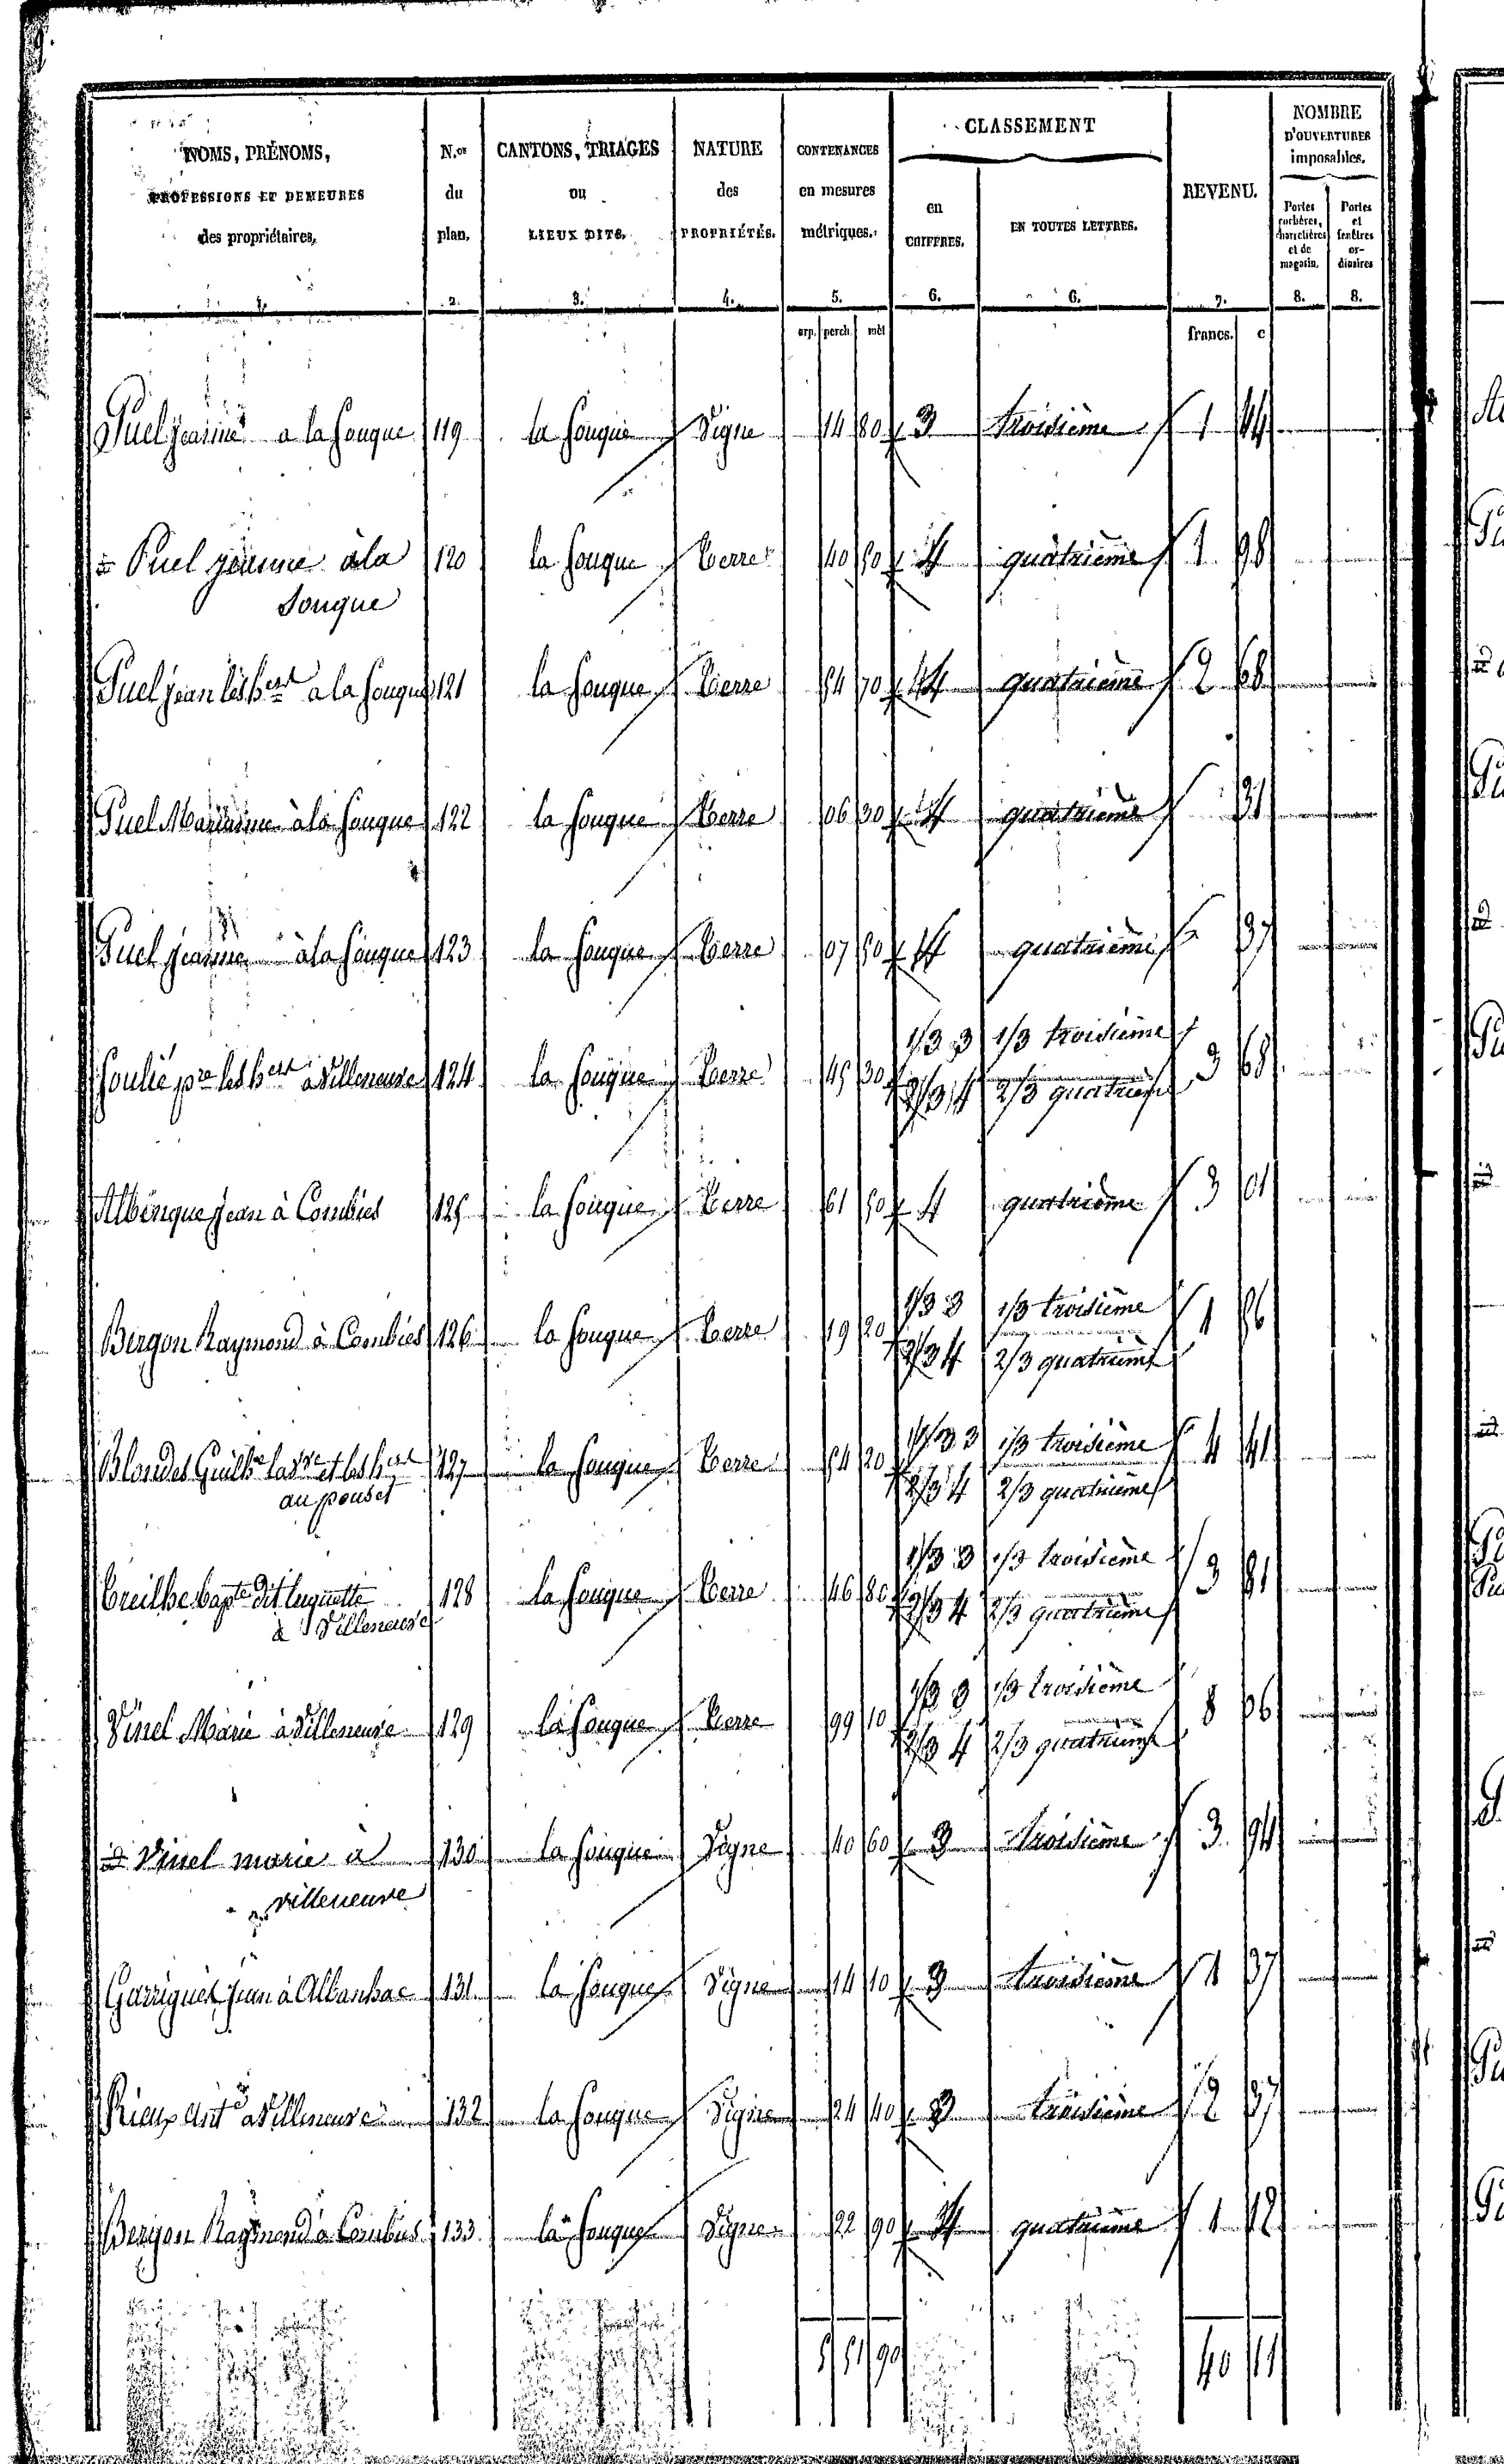 NOMS, PRÉNOMS, PROFESSIONS ET DEMEURES des propriétaires. N.os du plan. CANTONS, TRIAGES ou LIEUX DITS. NATURE des PROPRIÉTÉS. CONTENANCES en mesures métriques. CLASSEMENT en CHIFFRES. EN TOUTES LETTRES. REVENU. NOMBRE D'OUVERTURES imposables. Portes cochères, charretières et de magasin. Portes et fenêtres ordinaires
1. 2. 3. 4. 5. 6. 6. 7. 8. 8.
arp. perch. mèt francs. c
Puel jeanne a la souque 119 la souque Vigne 14 80 3 troisième 1 44
id Puel jeanne à la 120 la souque Terre 40 50 4 quatrième 1 98
souque
Puel jean les hers a la souque 121 la souque Terre 54 70 4 quatrième 2 68
Puel Marianne à la souque 122 la souque Terre 06 30 4 quatrième 31
Puel jeanne à la souque 123 la souque Terre 07 50 4 quatrième 37
1/3 3 1/3 troisième
Soulié pre les hers à Villeneuve 124 la souque Terre 45 30 2/3 4 2/3 quatrième 3 68
Albenque jean à Combies 125 la souque Terre 61 50 4 quatrième 3 01
1/3 3 1/3 troisième
Bergon Raymond à Combies 126 la souque Terre 19 20 2/3 4 2/3 quatrième 1 56
1/3 3 1/3 troisième
Blondet Guilhe la ve et les hers 127 la souque Terre 54 20 2/3 4 2/3 quatrième 4 41
au pouset
1/3 3 1/3 troisième
Treilhe bapte dit luquette 128 la souque Terre 46 80 2/3 4 2/3 quatrième 3 81
à Villeneuve
1/3 3 1/3 troisième
Vinel Marie à Villeneuve 129 la souque Terre 99 10 2/3 4 2/3 quatrième 8 06
id Vinel marie à 130 la souque Vigne 40 60 3 troisième 3 94
villeneuve
Garrigues jean à Albanhac 131 la souque Vigne 14 10 3 troisième 1 37
Rieux Ante à Villeneuve 132 la souque Vigne 24 40 3 troisième 2 37
Bergon Raymond à Combies 133 la souque Vigne 22 90 4 quatrième 1 12
5 51 90 40 11